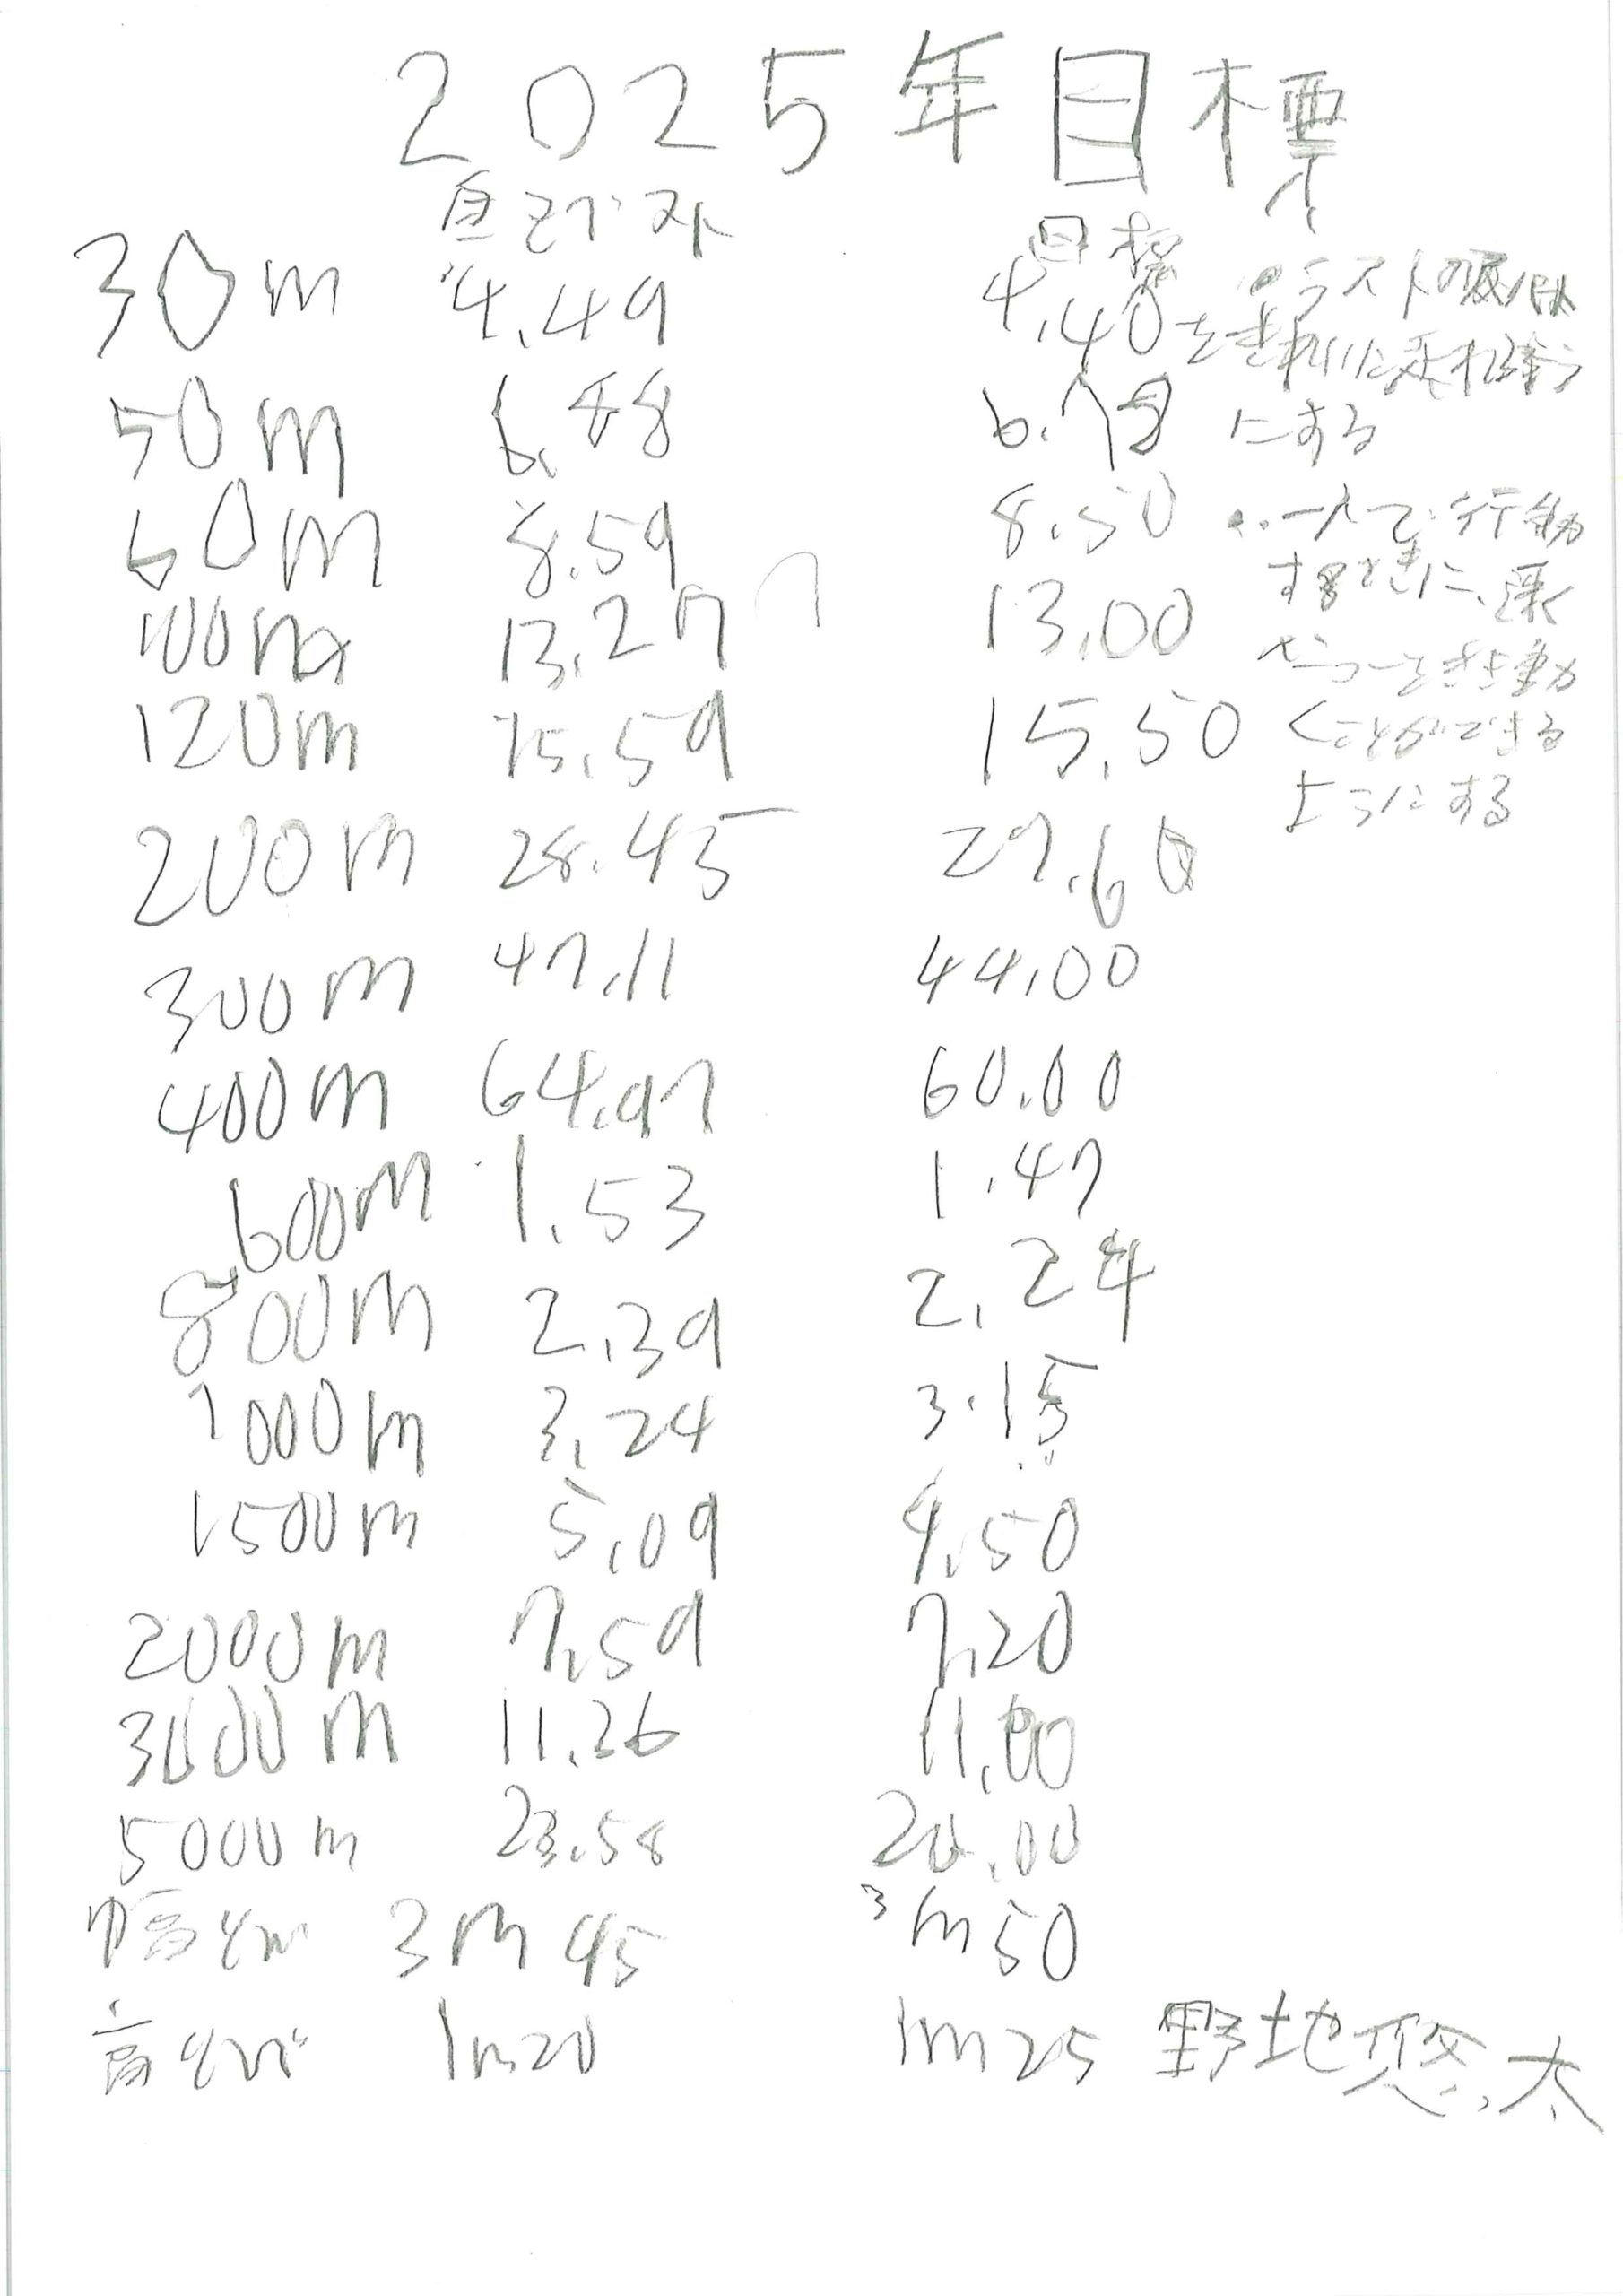 2025年目標
自己ベスト 目標
30m 4.49 4.40
50m 6.88 6.7
60m 8.59 8.50
100m 13.27 13.00
120m 15.59 15.50
200m 28.45 27.60
300m 47.11 44.00
400m 64.97 60.00
600m 1.53 1.47
800m 2.39 2.24
1000m 3.24 3.15
1500m 5.09 4.50
2000m 7.59 7.20
3000m 11.26 11.00
5000m 23.58 20.00
幅とび 3m45 3m50
高とび 1m20 1m25
ラストの
を
にする
・一人で行動
するときに、
動
くことができる
ようにする
野地悠太